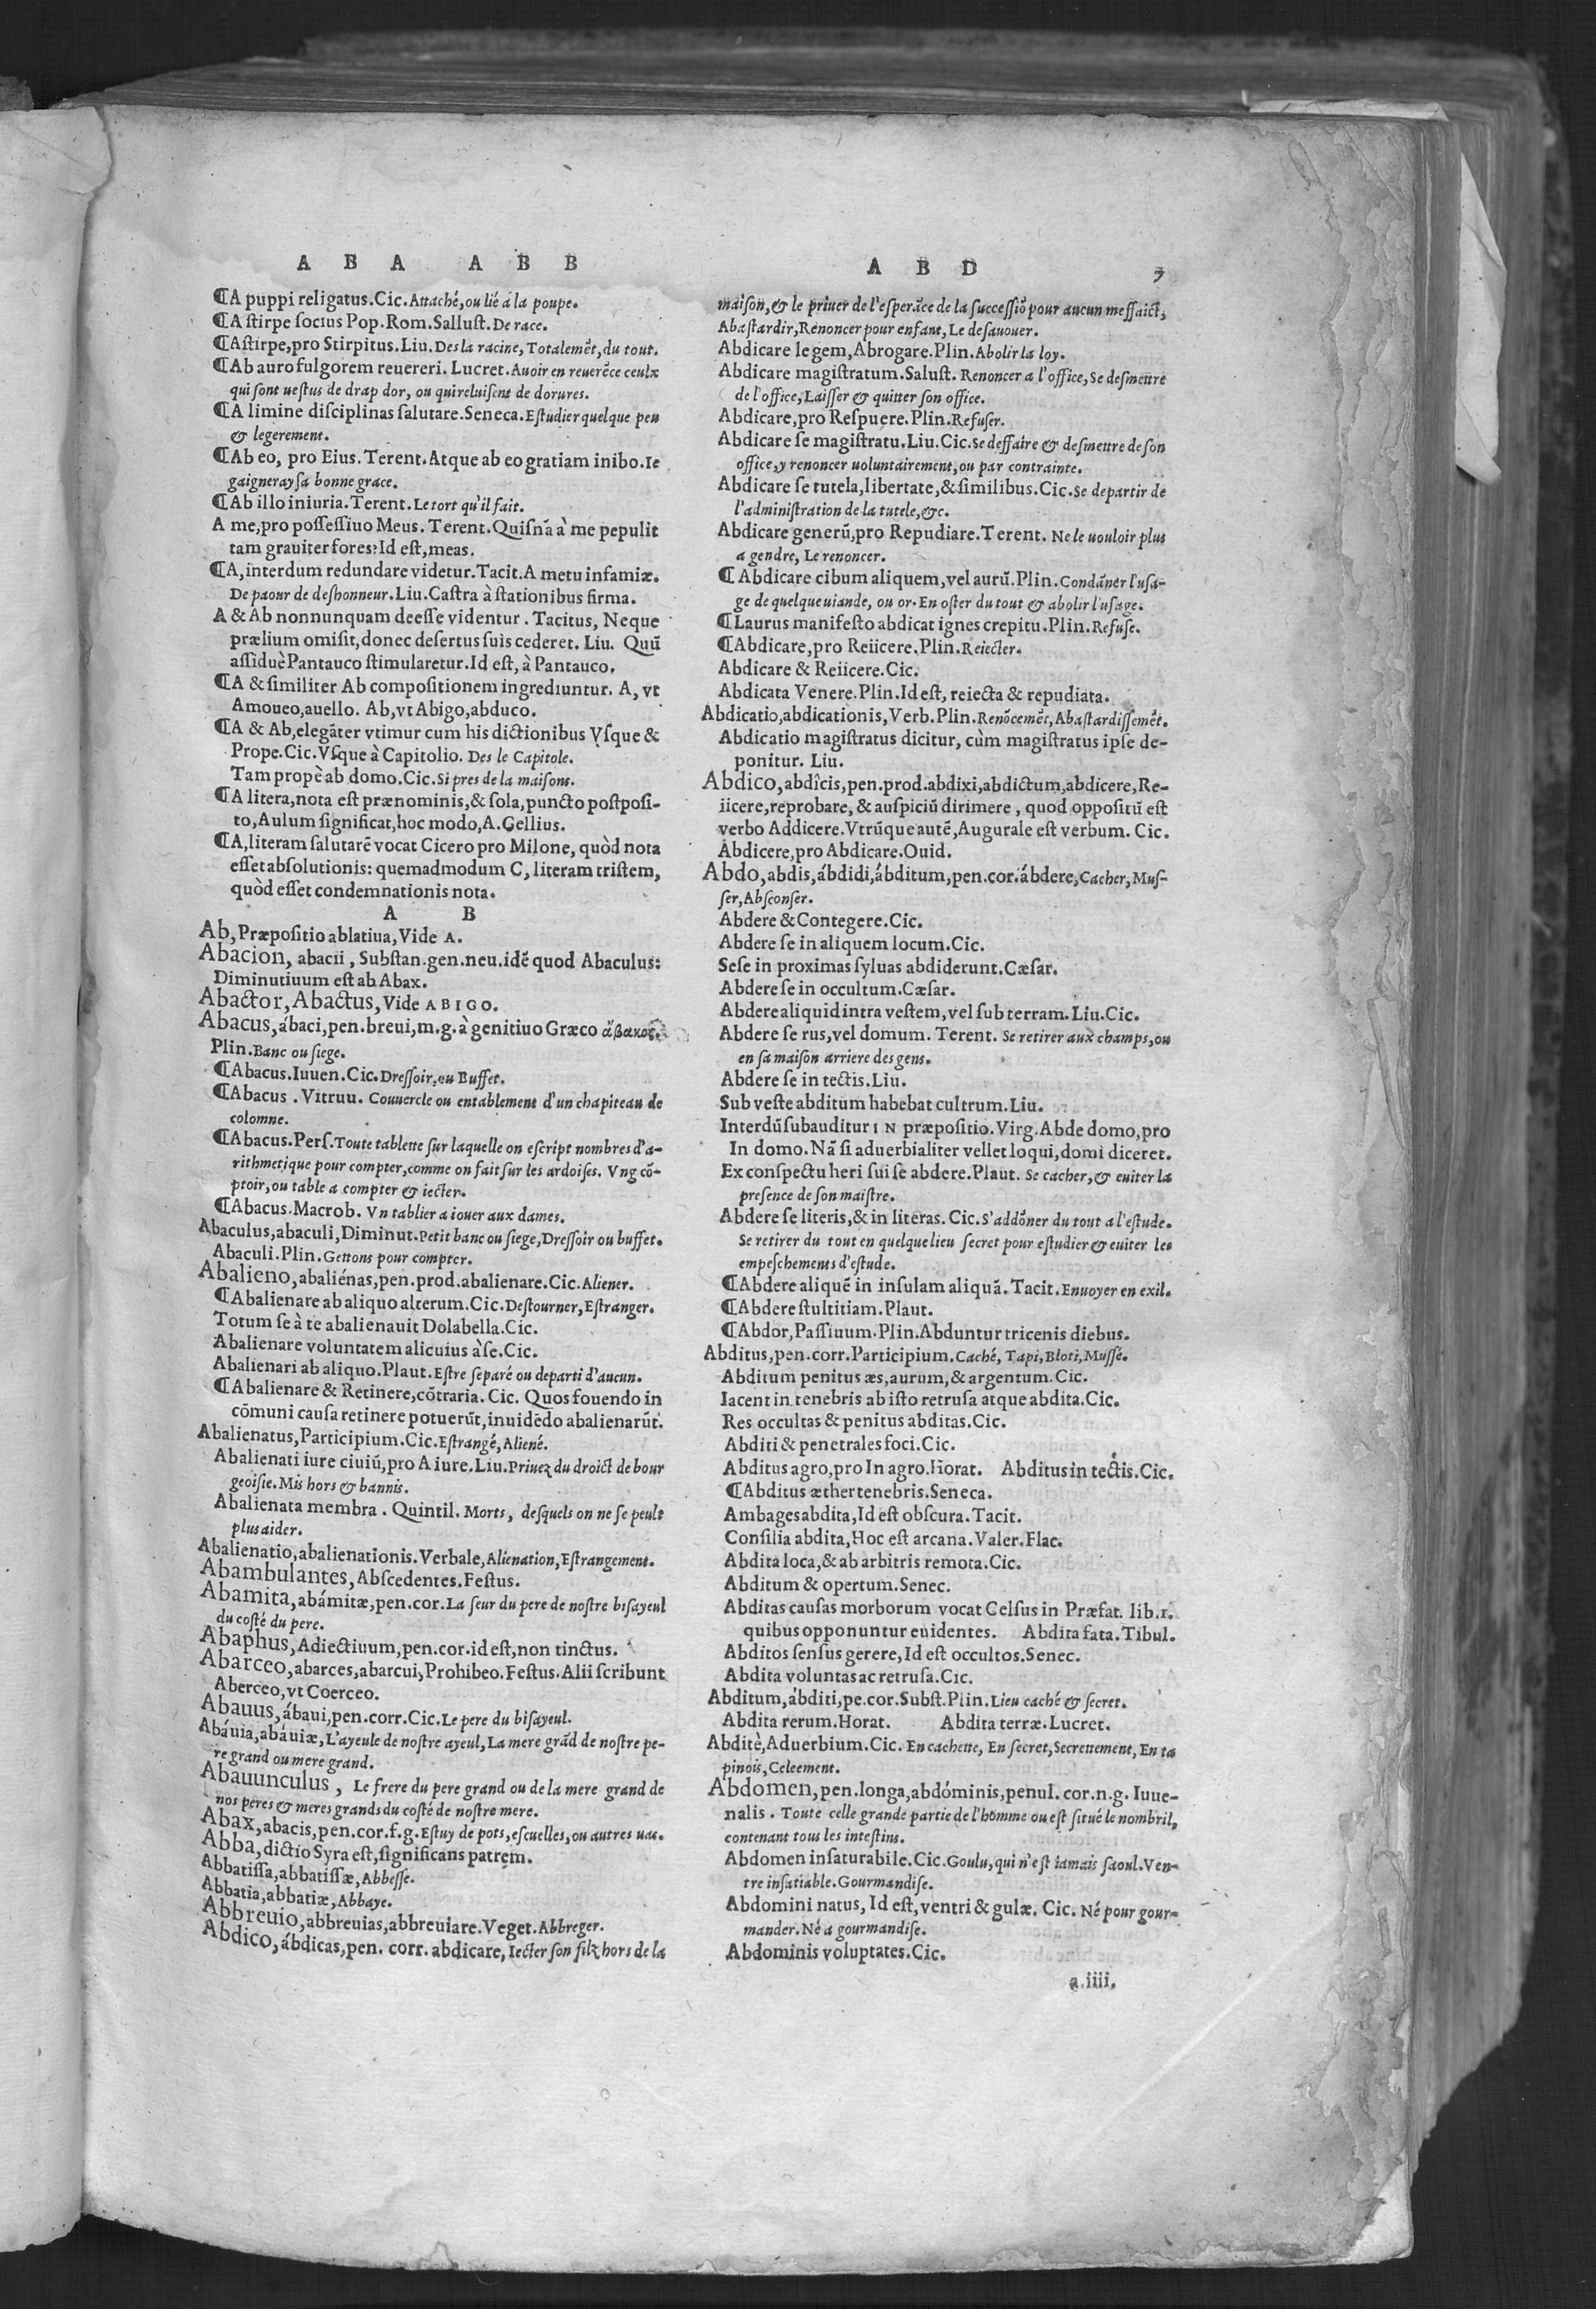 A B A A B B
¶A puppi religatus.Cic.Attaché,ou lié a la poupe.
¶A ſtirpe ſocius Pop.Rom.Salluſt.De race.
¶Aſtirpe,pro Stirpitus.Liu.Des la racine,Totalemēt,du tout.
¶Ab auro fulgorem reuereri. Lucret.Auoir en reuerēce ceulx
qui ſont ueſtus de drap dor, ou qui reluiſent de dorures.
¶A limine diſciplinas ſalutare.Seneca.Eſtudier quelque peu
& legerement.
¶Ab eo, pro Eius. Terent.Atque ab eo gratiam inibo.Ie
gaigneray ſa bonne grace.
¶Ab illo iniuria. Terent.Le tort qu'il fait.
A me,pro poſſeſſiuo Meus. Terent.Quiſnā à me pepulit
tam grauiter fores?Id eſt,meas.
¶A,interdum redundare videtur.Tacit.A metu infamiæ.
De paour de deshonneur.Liu.Caſtra à ſtationibus firma.
A & Ab nonnunquam deeſſe videntur. Tacitus, Neque
prælium omiſit,donec deſertus ſuis cederet. Liu. Quū
aſſiduè Pantauco ſtimularetur.Id eſt, à Pantauco.
¶A & ſimiliter Ab compoſitionem ingrediuntur. A, vt
Amoueo,auello. Ab,vt Abigo,abduco.
¶A & Ab,elegāter vtimur cum his dictionibus Vſque &
Prope.Cic.Vſque à Capitolio. Des le Capitole.
Tam propè ab domo.Cic.Si pres de la maiſons.
¶A litera,nota eſt prænominis,& ſola,puncto poſtpoſi-
to,Aulum ſignificat,hoc modo,A.Gellius.
¶A,literam ſalutarē vocat Cicero pro Milone, quòd nota
eſſet abſolutionis: quemadmodum C, literam triſtem,
quòd eſſet condemnationis nota.
A B
Ab,Præpoſitio ablatiua,Vide A.
Abacion, abacii, Subſtan.gen.neu.idē quod Abaculus:
Diminutiuum eſt ab Abax.
Abactor, Abactus, Vide ABIGO.
Abacus,ábaci,pen.breui,m.g.à genitiuo Græco ἄβακος.
Plin.Banc ou ſiege.
¶Abacus.Iuuen.Cic.Dreſſoir,ou Buffet.
¶Abacus. Vitruu. Couuercle ou entablement d'un chapiteau de
colomne.
¶Abacus.Perſ.Toute tablette ſur laquelle on eſcript nombres d'a-
rithmetique pour compter,comme on fait ſur les ardoiſes. Vng cō-
ptoir,ou table a compter & iecter.
¶Abacus.Macrob. Vn tablier a iouer aux dames.
Abaculus,abaculi,Diminut.Petit banc ou ſiege,Dreſſoir ou buffet.
Abaculi.Plin.Gettons pour compter.
Abalieno,abaliénas,pen.prod.abalienare.Cic.Aliener.
¶Abalienare ab aliquo alterum.Cic.Deſtourner,Eſtranger.
Totum ſe à te abalienauit Dolabella.Cic.
Abalienare voluntatem alicuius à ſe.Cic.
Abalienari ab aliquo.Plaut.Eſtre ſeparé ou departi d'aucun.
¶Abalienare & Retinere,cōtraria. Cic. Quos fouendo in
cōmuni cauſa retinere potuerūt,inuidēdo abalienarūt.
Abalienatus,Participium.Cic.Eſtrangé,Aliené.
Abalienati iure ciuiū,pro A iure.Liu.Priuez du droict de bour
geoiſie.Mis hors & bannis.
Abalienata membra. Quintil. Morts, deſquels on ne ſe peult
plus aider.
Abalienatio,abalienationis.Verbale,Alienation,Eſtrangement.
Abambulantes,Abſcedentes.Feſtus.
Abamita,abámitæ,pen.cor.La ſeur du pere de noſtre biſayeul
du coſté du pere.
Abaphus,Adiectiuum,pen.cor.id eſt,non tinctus.
Abarceo,abarces,abarcui,Prohibeo.Feſtus.Alii ſcribunt
Aberceo,vt Coerceo.
Abauus,ábaui,pen.corr.Cic.Le pere du biſayeul.
Abáuia,abáuiæ,L'ayeule de noſtre ayeul,La mere grād de noſtre pe-
re grand ou mere grand.
Abauunculus, Le frere du pere grand ou de la mere grand de
nos peres & meres grands du coſté de noſtre mere.
Abax,abacis,pen.cor.f.g.Eſtuy de pots,eſcuelles,ou autres uac.
Abba,dictio Syra eſt,ſignificans patrem.
Abbatiſſa,abbatiſſæ,Abbeſſe.
Abbatia,abbatiæ,Abbaye.
Abbreuio,abbreuias,abbreuiare.Veget.Abbreger.
Abdico,ábdicas,pen. corr. abdicare, Iecter ſon filz hors de la
A B D 3
maiſon,& le priuer de l'eſperāce de la ſucceſſiō pour aucun meffaict,
Abaſtardir,Renoncer pour enfant,Le deſauouer.
Abdicare legem,Abrogare.Plin.Abolir la loy.
Abdicare magiſtratum.Saluſt. Renoncer a l'office,Se deſmettre
de l'office,Laiſſer & quitter ſon office.
Abdicare,pro Reſpuere.Plin.Refuſer.
Abdicare ſe magiſtratu.Liu.Cic.Se deffaire & deſmettre de ſon
office,y renoncer uoluntairement,ou par contrainte.
Abdicare ſe tutela,libertate,&ſimilibus.Cic.Se departir de
l'adminiſtration de la tutele,&c.
Abdicare generū,pro Repudiare.Terent. Ne le uouloir plus
a gendre, Le renoncer.
¶Abdicare cibum aliquem,vel aurū.Plin.Condāner l'uſa-
ge de quelque uiande, ou or.En oſter du tout & abolir l'uſage.
¶Laurus manifeſto abdicat ignes crepitu.Plin.Refuſe.
¶Abdicare,pro Reiicere.Plin.Reiecter.
Abdicare & Reiicere.Cic.
Abdicata Venere.Plin.Id eſt, reiecta & repudiata.
Abdicatio,abdicationis,Verb.Plin.Renōcemēt,Abaſtardiſſemēt.
Abdicatio magiſtratus dicitur, cùm magiſtratus ipſe de-
ponitur. Liu.
Abdico,abdîcis,pen.prod.abdixi,abdictum,abdicere,Re-
iicere,reprobare, & auſpiciū dirimere, quod oppoſitū eſt
verbo Addicere.Vtrūque autē,Augurale eſt verbum. Cic.
Abdicere,pro Abdicare.Ouid.
Abdo,abdis,ábdidi,ábditum,pen.cor.ábdere,Cacher,Muſ-
ſer,Abſconſer.
Abdere & Contegere.Cic.
Abdere ſe in aliquem locum.Cic.
Seſe in proximas ſyluas abdiderunt.Cæſar.
Abdere ſe in occultum.Cæſar.
Abdere aliquid intra veſtem,vel ſub terram.Liu.Cic.
Abdere ſe rus,vel domum. Terent. Se retirer aux champs,ou
en ſa maiſon arriere des gens.
Abdere ſe in tectis.Liu.
Sub veſte abditum habebat cultrum.Liu.
Interdū ſubauditur IN præpoſitio.Virg.Abde domo,pro
In domo.Nā ſi aduerbialiter vellet loqui,domi diceret.
Ex conſpectu heri ſui ſe abdere.Plaut. Se cacher,& euiter la
preſence de ſon maiſtre.
Abdere ſe literis,& in literas. Cic.S'addōner du tout a l'eſtude.
Se retirer du tout en quelque lieu ſecret pour eſtudier & euiter les
empeſchements d'eſtude.
¶Abdere aliquē in inſulam aliquā. Tacit.Enuoyer en exil.
¶Abdere ſtultitiam.Plaut.
¶Abdor,Paſſiuum.Plin.Abduntur tricenis diebus.
Abditus,pen.corr.Participium.Caché, Tapi,Bloti,Muſſé.
Abditum penitus æs,aurum,& argentum.Cic.
Iacent in tenebris ab iſto retruſa atque abdita.Cic.
Res occultas & penitus abditas.Cic.
Abditi & penetrales foci.Cic.
Abditus agro,pro In agro.Horat. Abditus in tectis.Cic.
¶Abditus æther tenebris.Seneca.
Ambages abdita,Id eſt obſcura.Tacit.
Conſilia abdita,Hoc eſt arcana.Valer.Flac.
Abdita loca,& ab arbitris remota.Cic.
Abditum & opertum.Senec.
Abditas cauſas morborum vocat Celſus in Præfat. lib.1.
quibus opponuntur euidentes. Abdita fata.Tibul.
Abditos ſenſus gerere,Id eſt occultos.Senec.
Abdita voluntas ac retruſa.Cic.
Abditum,ábditi,pe.cor.Subſt.Plin.Lieu caché & ſecret.
Abdita rerum.Horat. Abdita terræ.Lucret.
Abditè,Aduerbium.Cic.En cachette, En ſecret,Secrettement,En ta
pinois,Celeement.
Abdomen,pen.longa,abdóminis,penul. cor.n.g. Iuue-
nalis. Toute celle grande partie de l'homme ou eſt ſitué le nombril,
contenant tous les inteſtins.
Abdomen inſaturabile.Cic.Goulu,qui n'eſt iamais ſaoul.Ven-
tre inſatiable.Gourmandiſe.
Abdomini natus, Id eſt,ventri & gulæ. Cic. Né pour gour-
mander.Né a gourmandiſe.
Abdominis voluptates.Cic.
a.iiii.